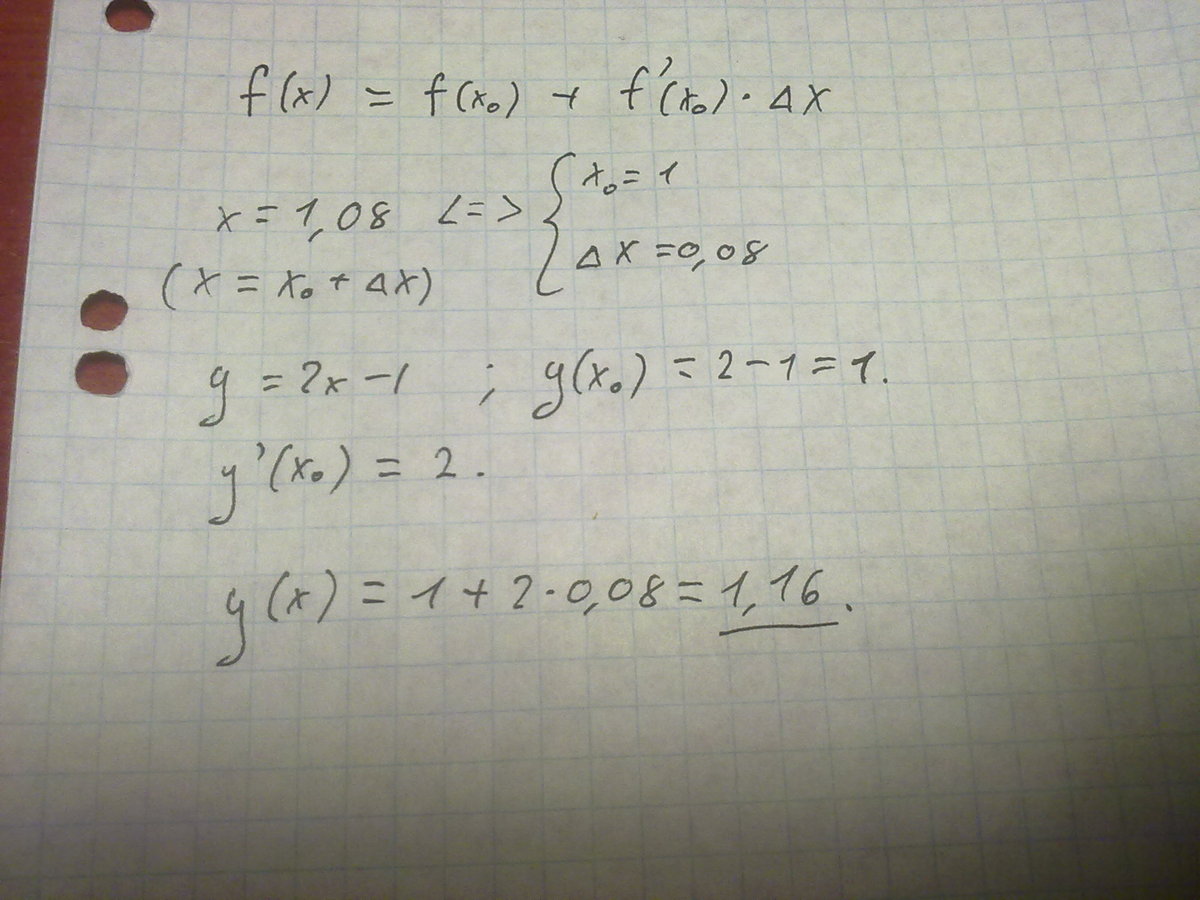 f(x) = f(x₀) + f'(x₀) · Δx
x = 1,08 <=> { x₀ = 1
Δx = 0,08
(x = x₀ + Δx)
y = 2x - 1 ; y(x₀) = 2 - 1 = 1.
y'(x₀) = 2.
y(x) = 1 + 2 · 0,08 = 1,16.